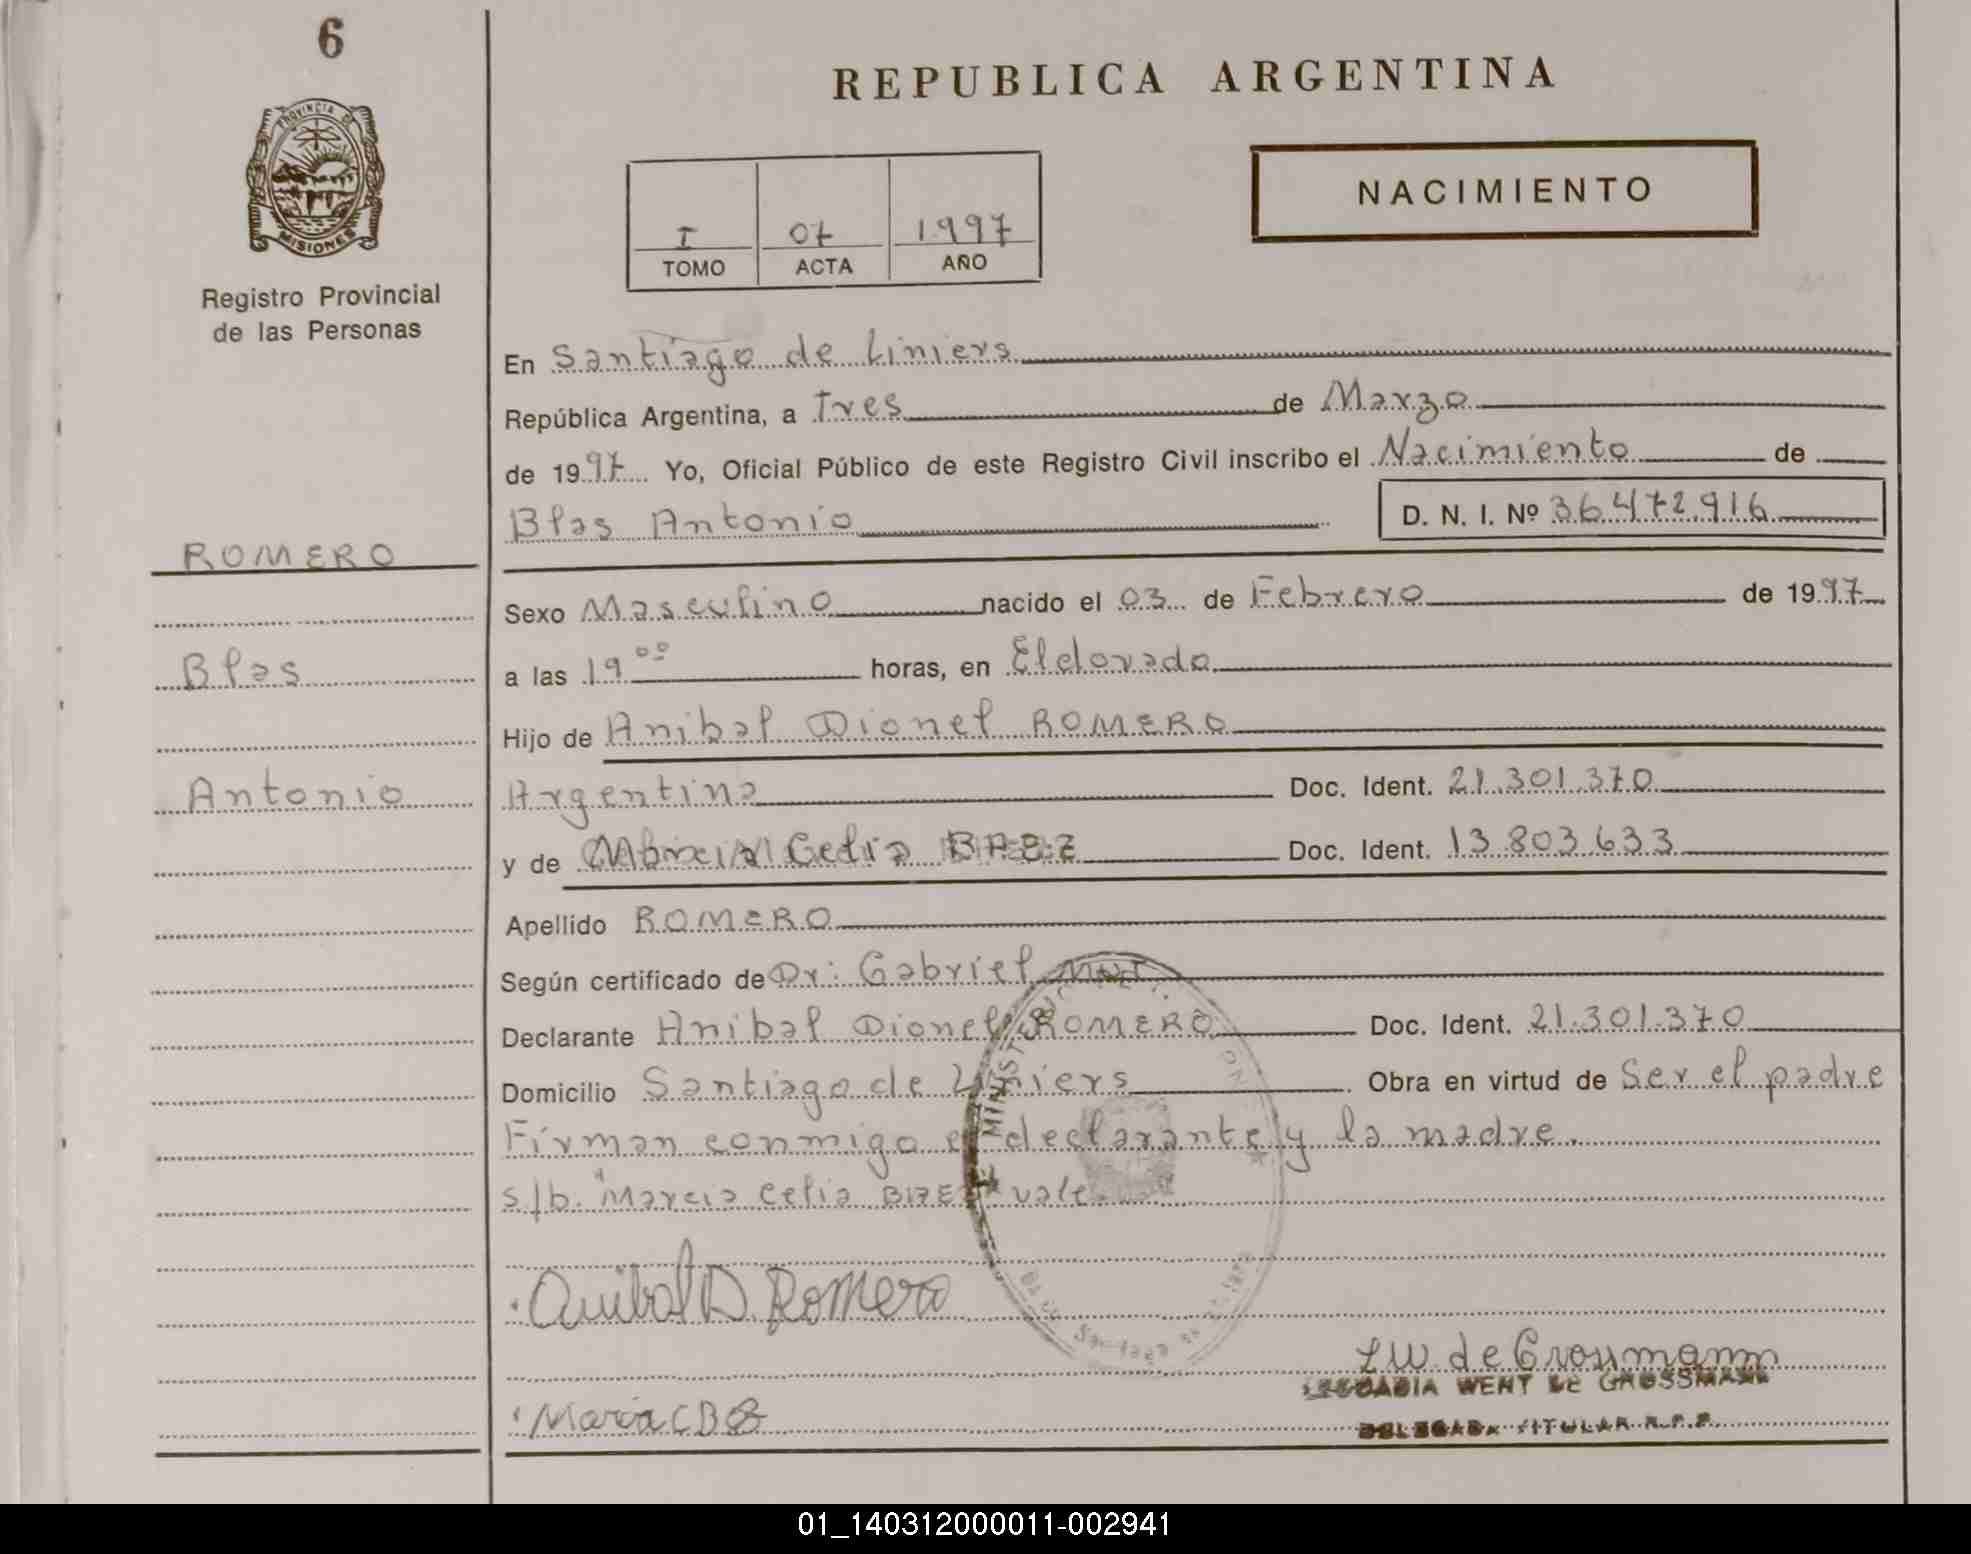 6
REPUBLICA ARGENTINA
PROVINCIA DE
MISIONES
Registro Provincial
de las Personas
NACIMIENTO
I 07 1997
TOMO ACTA AÑO
En Santiago de Liniers
República Argentina, a Tres de Marzo
de 1997 Yo, Oficial Público de este Registro Civil inscribo el Nacimiento de
Blas Antonio D. N. I. Nº 36.472.916
ROMERO
Sexo Masculino nacido el 03 de Febrero de 1997
Blas
a las 19 ºº horas, en Eldorado
Hijo de Anibal Dionel ROMERO
Antonio
Argentina Doc. Ident. 21.301.370
y de Celia BAEZ Doc. Ident. 13.803.633
Apellido ROMERO
Según certificado de Dr: Gabriel
Declarante Anibal Dionel ROMERO Doc. Ident. 21.301.370
Domicilio Santiago de Liniers Obra en virtud de Ser el padre
Firman conmigo el declarante y la madre.
s/b. "Marcia Celia BAEZ" vale.
Anibal D. Romero
LW de Grossmann
WENT DE GROSSMANN
Maria C B
DELEGADA TITULAR R.P.P.
01_140312000011-002941